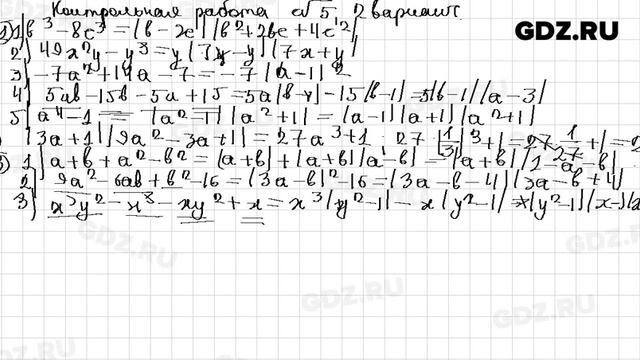 Контрольная работа №5. 2 вариант.
GDZ.RU
1) 1) b³ - 8c³ = (b - 2c)(b² + 2bc + 4c²)
2) 49x²y - y³ = y(7x - y)(7x + y)
3) -7a² + 14a - 7 = -7(a - 1)²
4) 5ab - 15b - 5a + 15 = 5a(b - 1) - 15(b - 1) = 5(b - 1)(a - 3)
5) a⁴ - 1 = (a² - 1)(a² + 1) = (a - 1)(a + 1)(a² + 1)
(3a + 1)(9a² - 3a + 1) = 27a³ + 1 27 (1/3)³ + 1 = 27 1/27 + 1 = 2
1) a + b + a² - b² = (a + b) + (a + b)(a - b) = (a + b)(1 - a - b)
2) 9a² - 6ab + b² - 16 = (3a - b)² - 16 = (3a - b - 4)(3a - b + 4)
3) x³y² - x³ - xy² + x = x³(y² - 1) - x(y² - 1)
GDZ.RU
GDZ.RU
GDZ.RU
GDZ.RU